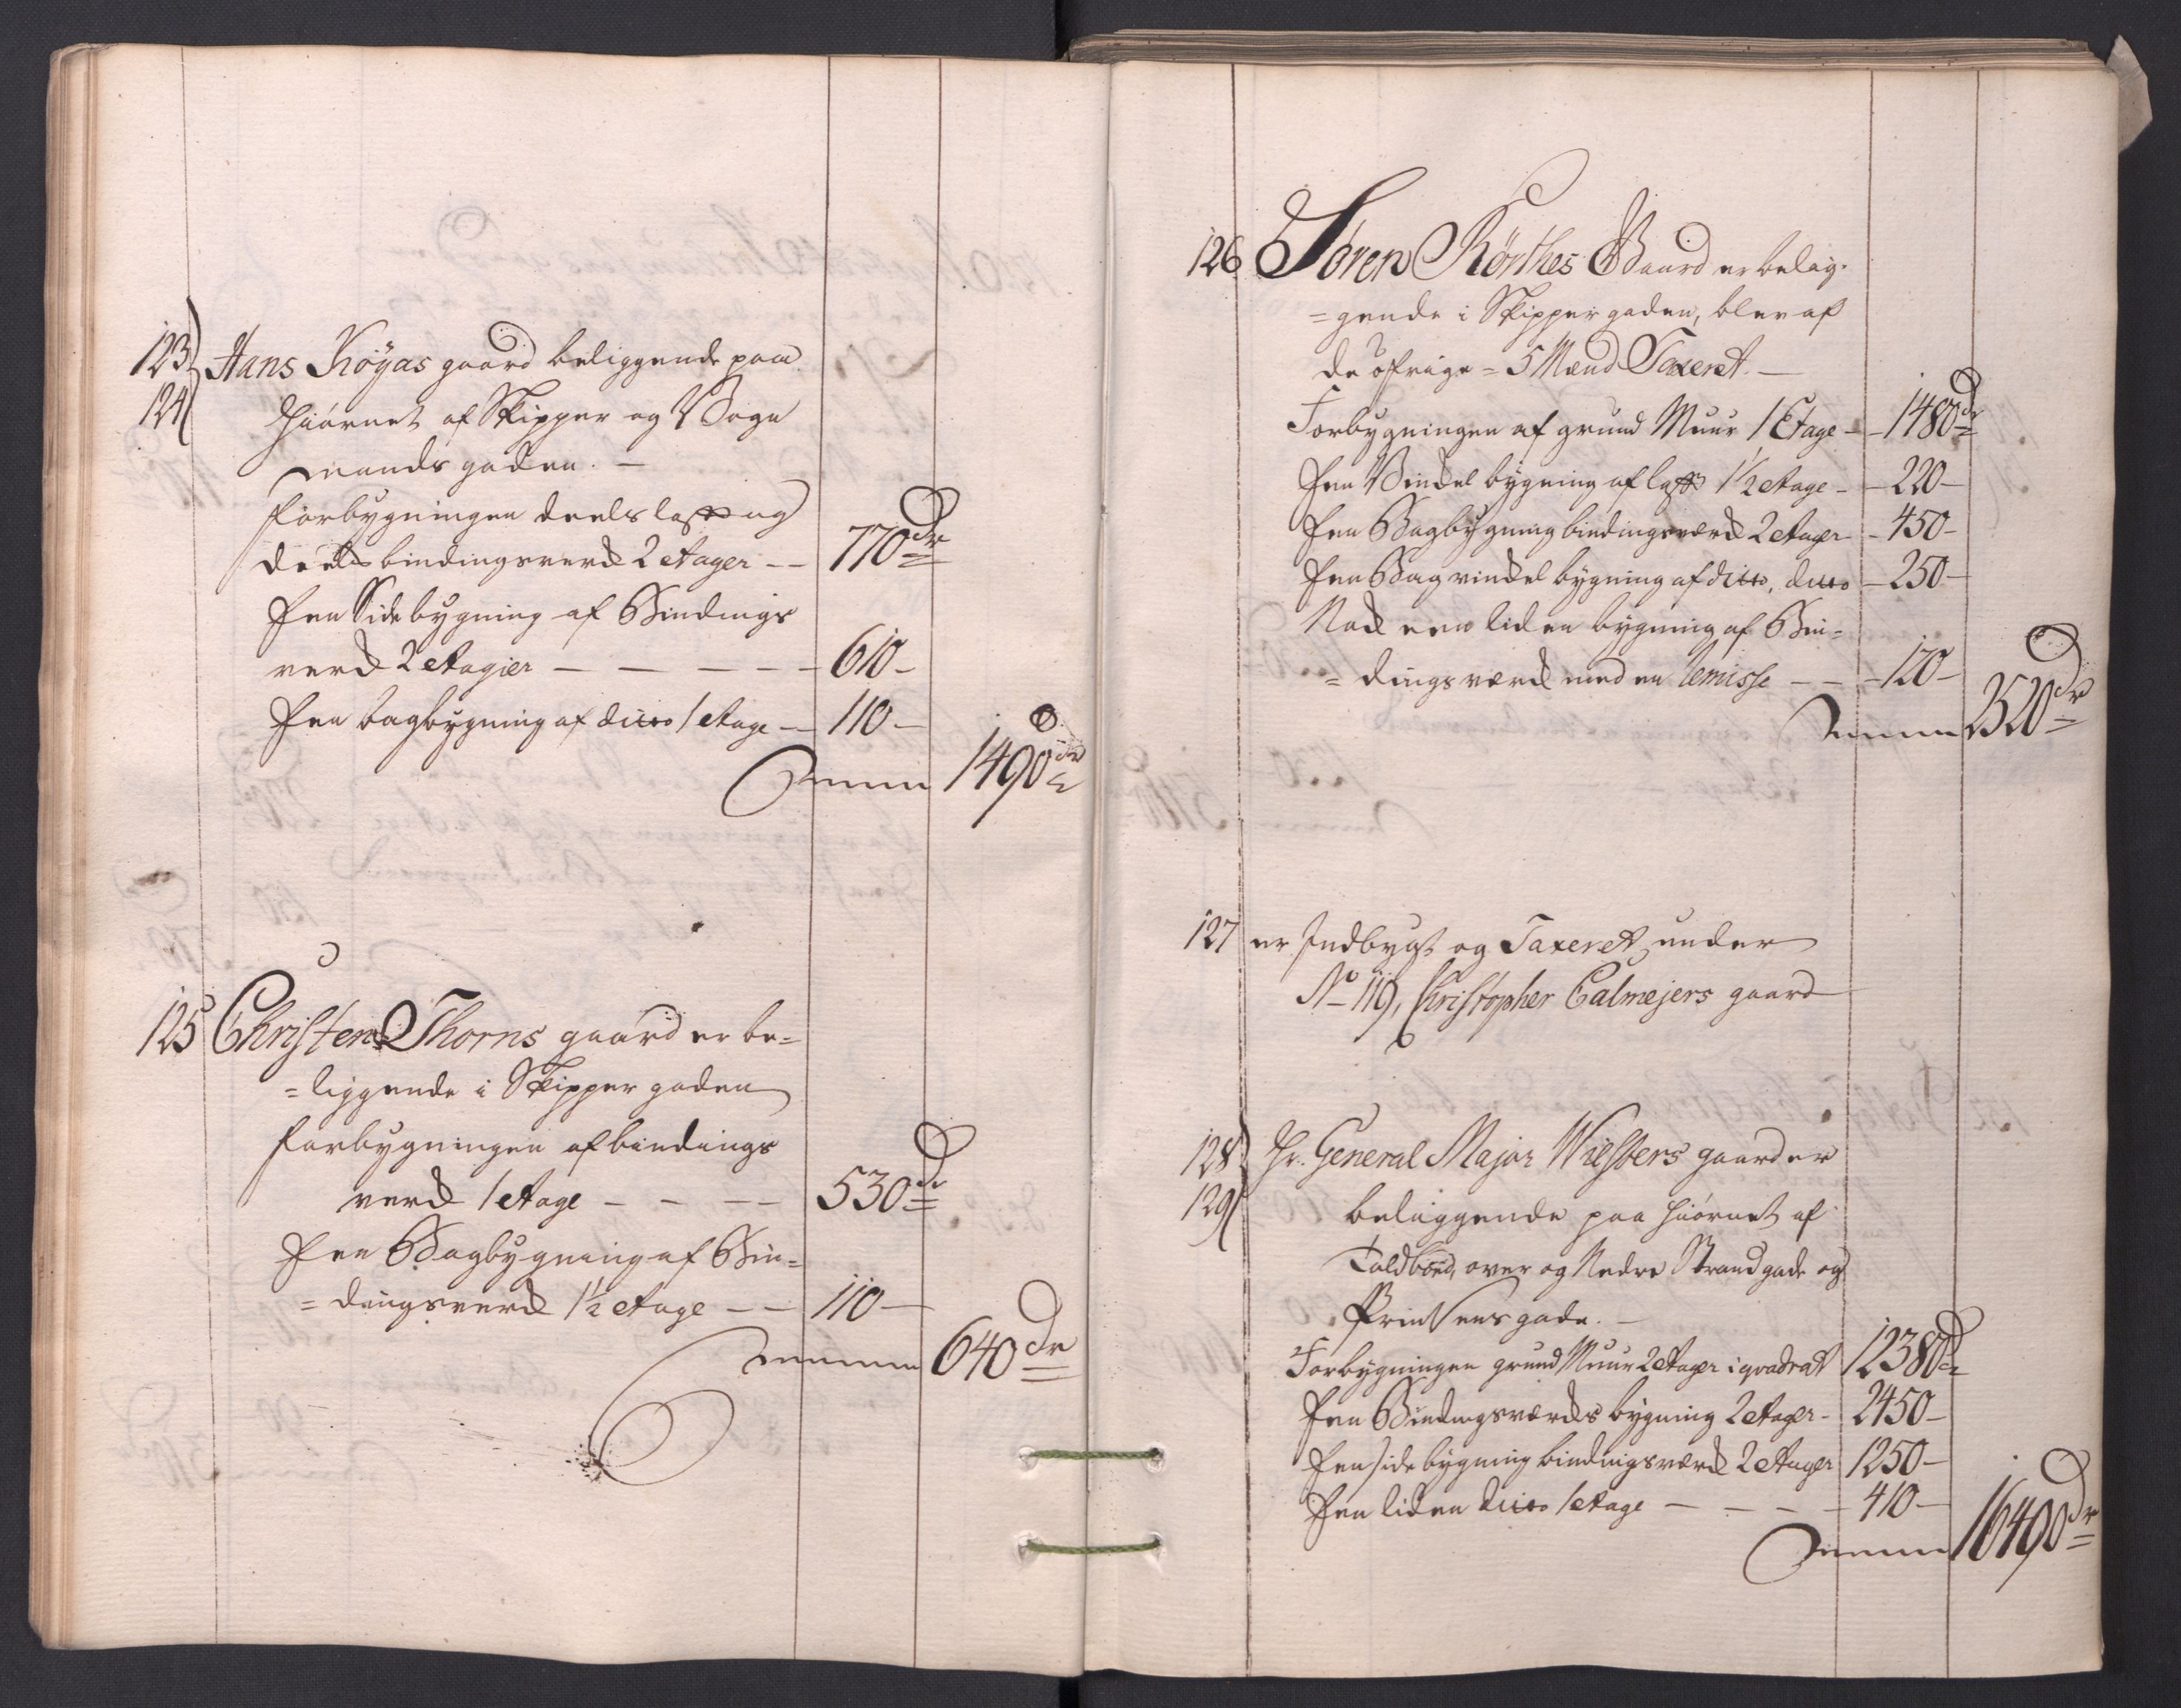 123 Hans Köÿas gaard beliggende paa
124 Hiörnet af Skipper og Vogn
mands gaden. —
Forbygningen deels laft og
deels bindingsverk 2 etager — — 770 dr
Een Sidebygning af Bindings
verk 2 etagier — — — — — 610 –
Een bagbygning af ditto 1 etage — 110 –
Summa 1490 dr
125 Christen Thorns gaard er be=
=liggende i Skipper gaden
Forbygningen af bindings
verk 1 etage — — — — 530 dr
Een Bagbygning af Bin=
=dingsverk 1½ etage — — 110 —
Summa 640 dr
126 Sören Rörthes Gaard er belig=
=gende i Skipper gaden, blev af
de öfrige = 5 Mænd Taxeret. —
Forbygningen af grund Muur 1 Etage — 1480 dr
Een Vindel bygning af laft 1½ etage — 220 —
Een Bagbygning bindingsværk 2 etager — 450 –
Een Bag vindel bygning af ditto, ditto — 250 —
Nok een liden bygning af Bin=
=dingsværk med en Remisse — — 120 –
Summa 2520 dr
127 er Indbygt og Taxeret under
No 119, Christopher Calmejers gaard
128 Hr. General Major Wielsters gaard er
129 beliggende paa Hiörnet af
Toldbod, over og Nedre Strandgade og
Printzens gade. —
Forbygningen grund Muur 2 Etager i qvadrat 12380 dr
Een Bindingsværks bygning 2 etager – 2450 –
Een side bygning bindingsværk 2 etager 1250 –
Een liden ditto 1 etage — — — — 410 —
Summa 16490 dr